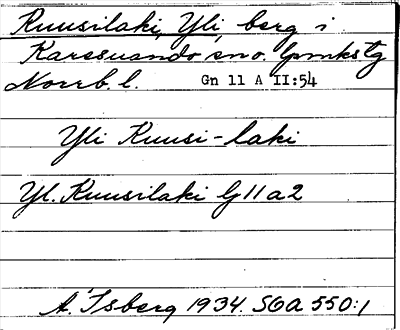 Kuusilaki, Yli, berg i
Karesuando sno. lpmkstg
Norrb. l. Gn 11 A II:54
Yli Kuusi-laki
Yl. Kuusilaki G11a2
A. Isberg 1934. SOA 550:1